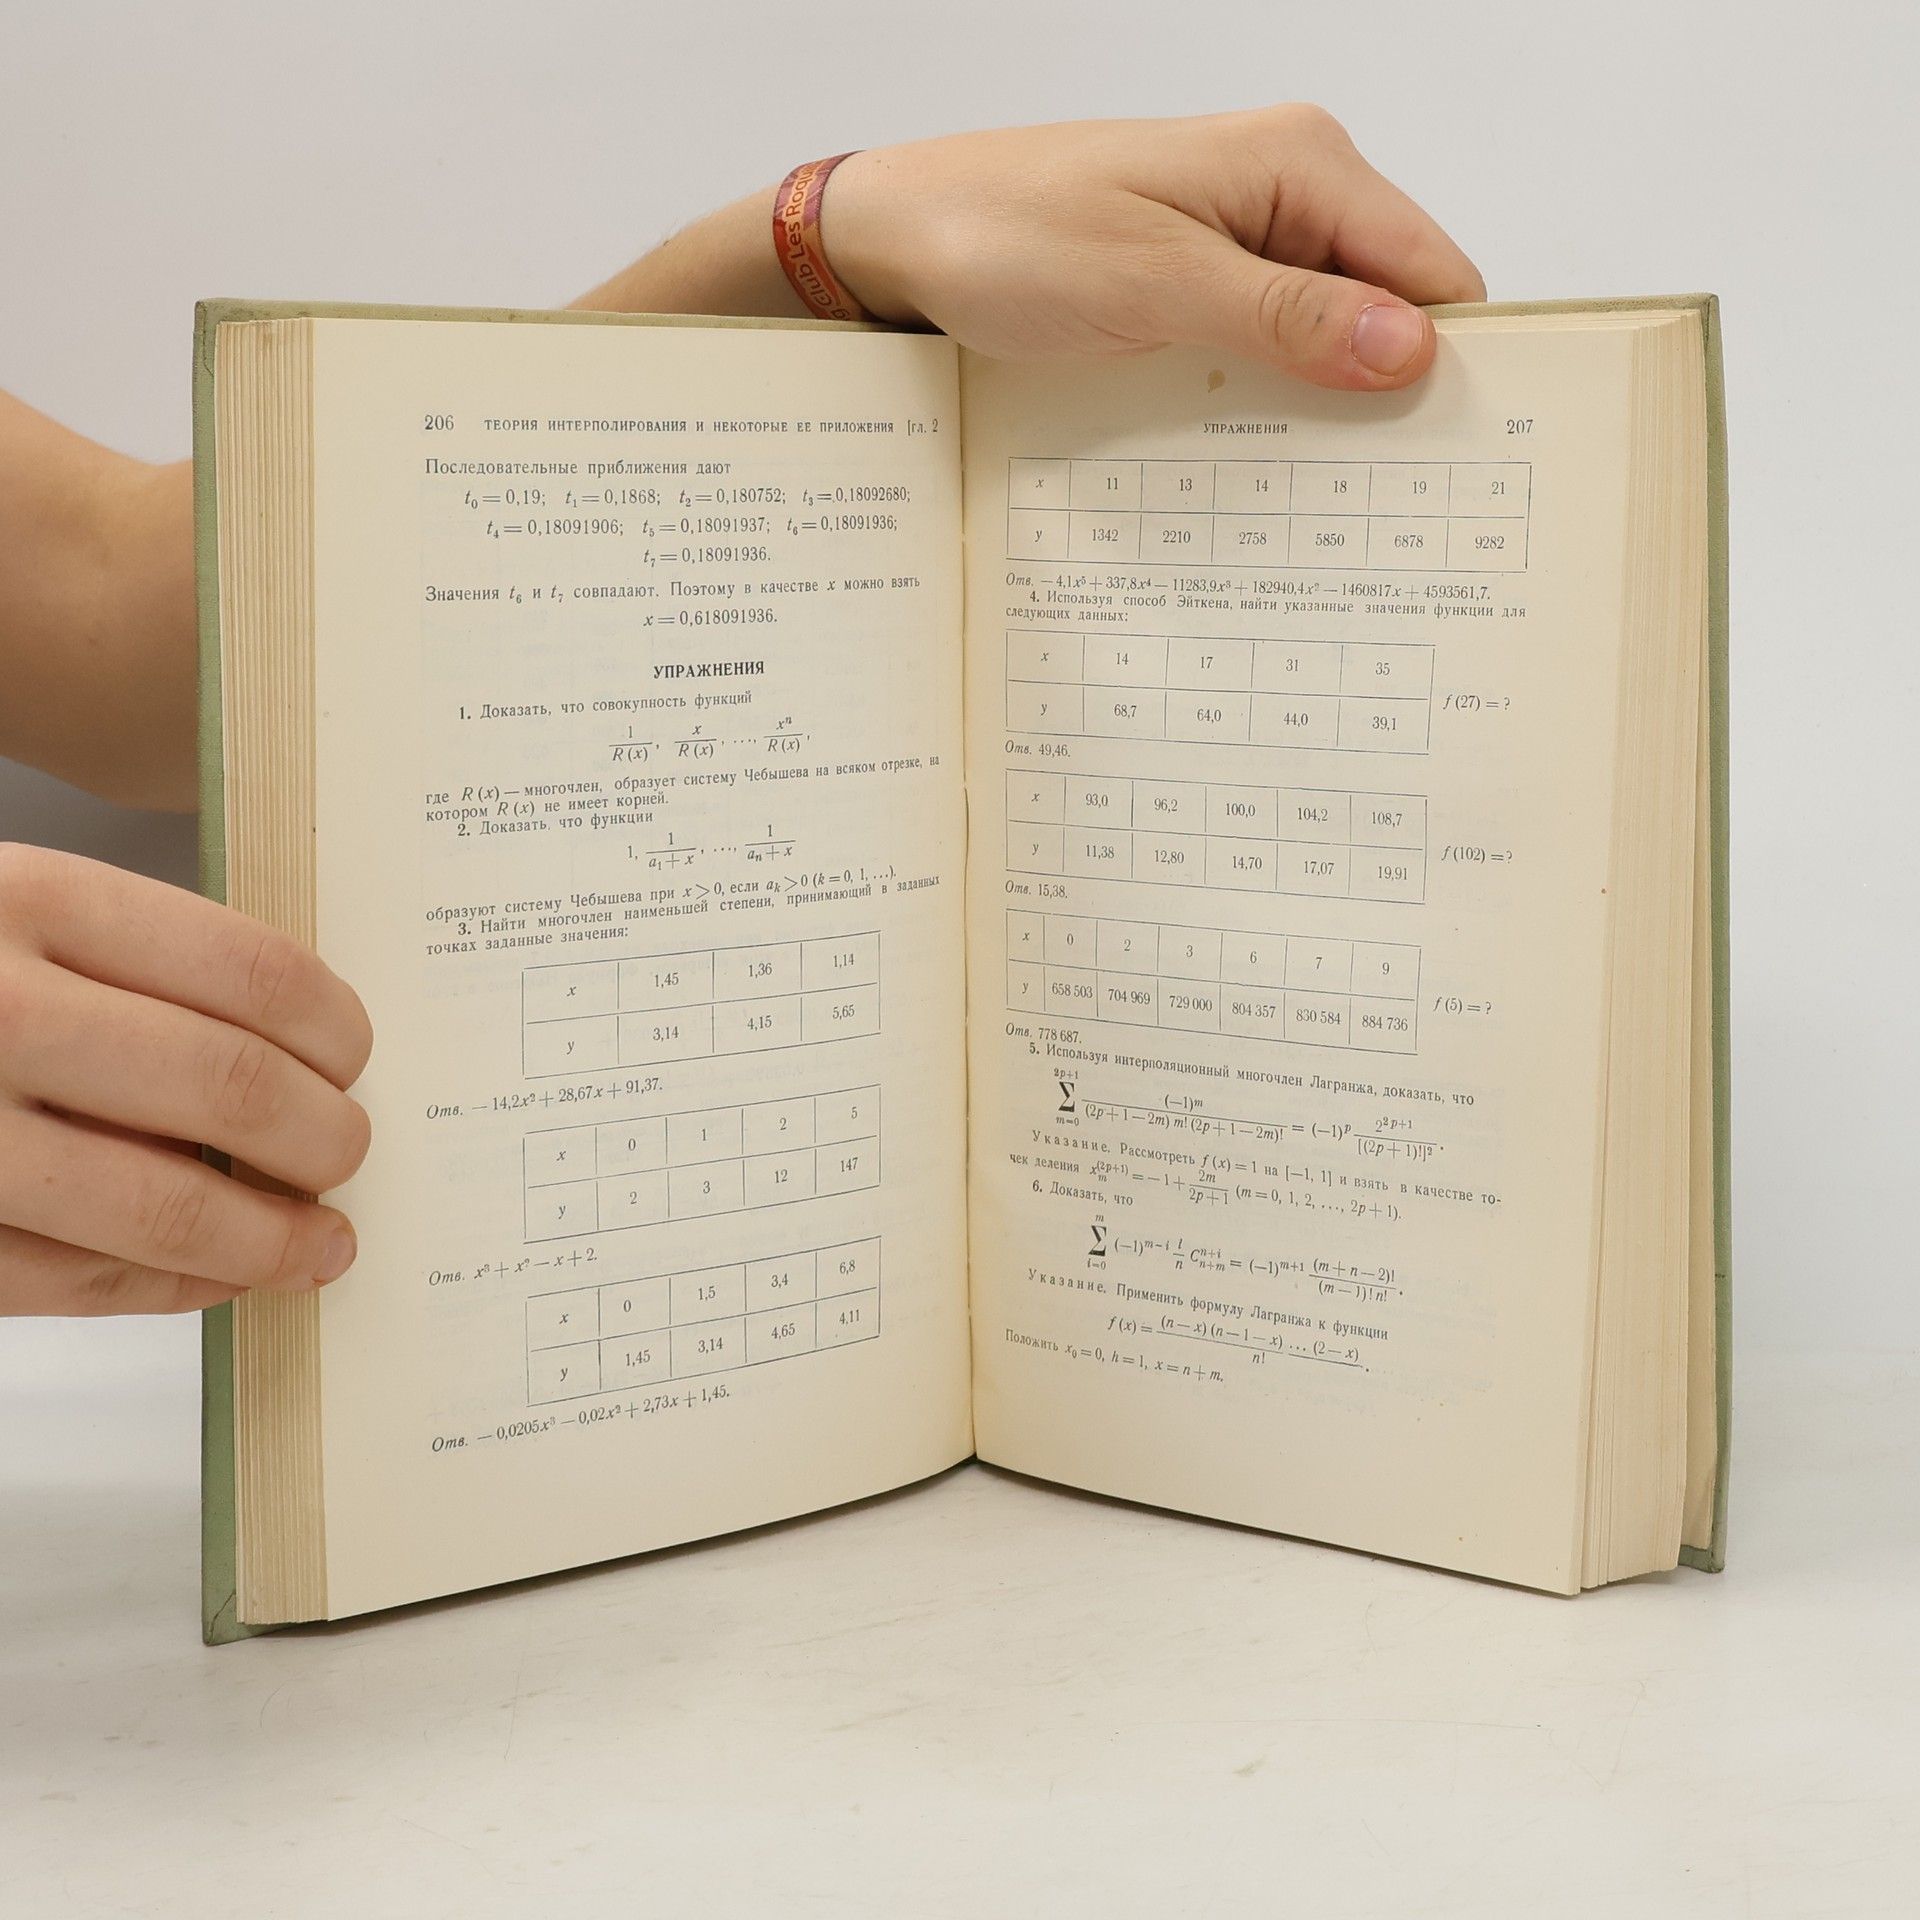 Club Les Roqu
206 ТЕОРИЯ ИНТЕРПОЛИРОВАНИЯ И НЕКОТОРЫЕ ЕЕ ПРИЛОЖЕНИЯ [гл. 2
Последовательные приближения дают
t₀ = 0,19; t₁ = 0,1868; t₂ = 0,180752; t₃ = 0,18092680;
t₄ = 0,18091906; t₅ = 0,18091937; t₆ = 0,18091936;
t₇ = 0,18091936.
Значения t₆ и t₇ совпадают. Поэтому в качестве x можно взять
x = 0,618091936.
УПРАЖНЕНИЯ
1. Доказать, что совокупность функций
1/R (x), x/R (x), ..., xⁿ/R (x),
где R (x) — многочлен, образует систему Чебышева на всяком отрезке, на
котором R (x) не имеет корней.
2. Доказать, что функции
1, 1/(a₁ + x), ..., 1/(aₙ + x)
образуют систему Чебышева при x > 0, если aₖ > 0 (k = 0, 1, ...).
3. Найти многочлен наименьшей степени, принимающий в заданных
точках заданные значения:
x 1,45 1,36 1,14
y 3,14 4,15 5,65
Отв. — 14,2x² + 28,67x + 91,37.
x 0 1 2 5
y 2 3 12 147
Отв. x³ + x² — x + 2.
x 0 1,5 3,4 6,8
y 1,45 3,14 4,65 4,11
Отв. — 0,0205x³ — 0,02x² + 2,73x + 1,45.
УПРАЖНЕНИЯ 207
x 11 13 14 18 19 21
y 1342 2210 2758 5850 6878 9282
Отв. — 4,1x⁵ + 337,8x⁴ — 11283,9x³ + 182940,4x² — 1460817x + 4593561,7.
4. Используя способ Эйткена, найти указанные значения функции для
следующих данных:
x 14 17 31 35
y 68,7 64,0 44,0 39,1
f (27) = ?
Отв. 49,46.
x 93,0 96,2 100,0 104,2 108,7
y 11,38 12,80 14,70 17,07 19,91
f (102) = ?
Отв. 15,38.
x 0 2 3 6 7 9
y 658 503 704 969 729 000 804 357 830 584 884 736
f (5) = ?
Отв. 778 687.
5. Используя интерполяционный многочлен Лагранжа, доказать, что
∑_{m=0}^{2p+1} (—1)ᵐ/((2p + 1 — 2m) m! (2p + 1 — 2m)!) = (—1)ᵖ 2²ᵖ⁺¹/[(2p + 1)!]².
Указание. Рассмотреть f (x) = 1 на [—1, 1] и взять в качестве то-
чек деления xₘ^(2p+1) = — 1 + 2m/(2p + 1) (m = 0, 1, 2, ..., 2p + 1).
6. Доказать, что
∑_{i=0}^{m} (—1)^{m—i} i/n C_{n+m}^{n+i} = (—1)^{m+1} (m + n — 2)!/((m — 1)! n!).
Указание. Применить формулу Лагранжа к функции
f (x) = (n — x) (n — 1 — x) ... (2 — x)/n!.
Положить x₀ = 0, h = 1, x = n + m.